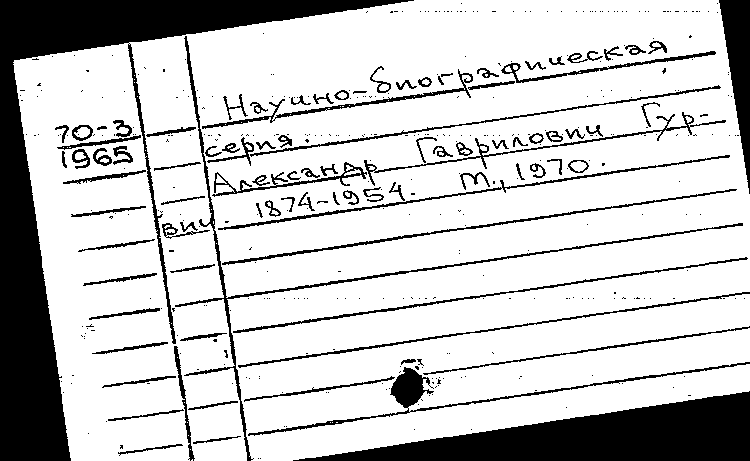 Научно-биографическая
70-3
1965
серия.
Александр Гаврилович Гур-
вич. 1874-1954. М., 1970.